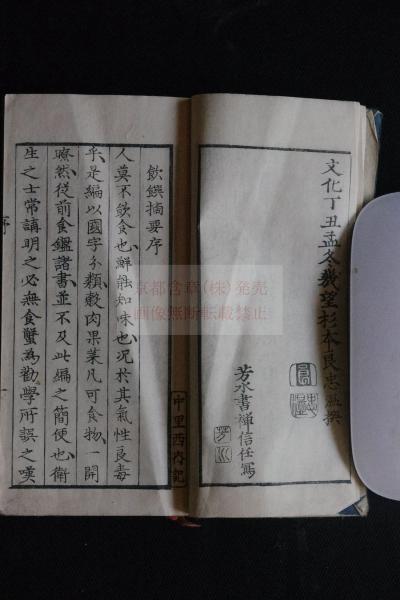 文化丁丑孟冬幾望杉本良忠温撰
芳水書禅信任寫
飲饌摘要序
人莫不飲食也鮮能知味也况於其氣性良毒
乎是編以國字分類穀肉果菜凡可食物一開
瞭然従前食鑑諸書並不及此編之簡便也衛
生之士常講明之必無食蟹為勸學所誤之嘆
序
中里西内記
京都含章(株)発売
画像無断転載禁止